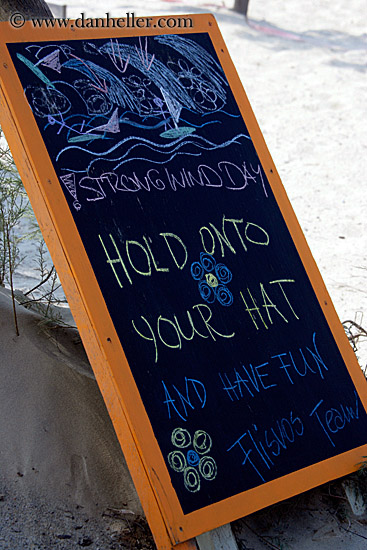 © www.danheller.com
! STRONG WIND DAY
HOLD ONTO
YOUR HAT
AND HAVE FUN
Flisvos Team